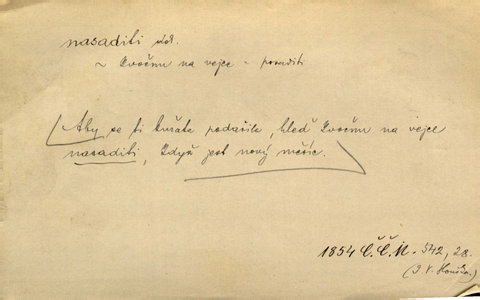 nasaditi dok.
~ kvočnu na vejce - posaditi
Aby se ti kuřata podařila, hleď kvočnu na vejce
nasaditi, když jest nový měsíc.
1854 Č.Č.M. 542, 28.
(J. V. Houška.)